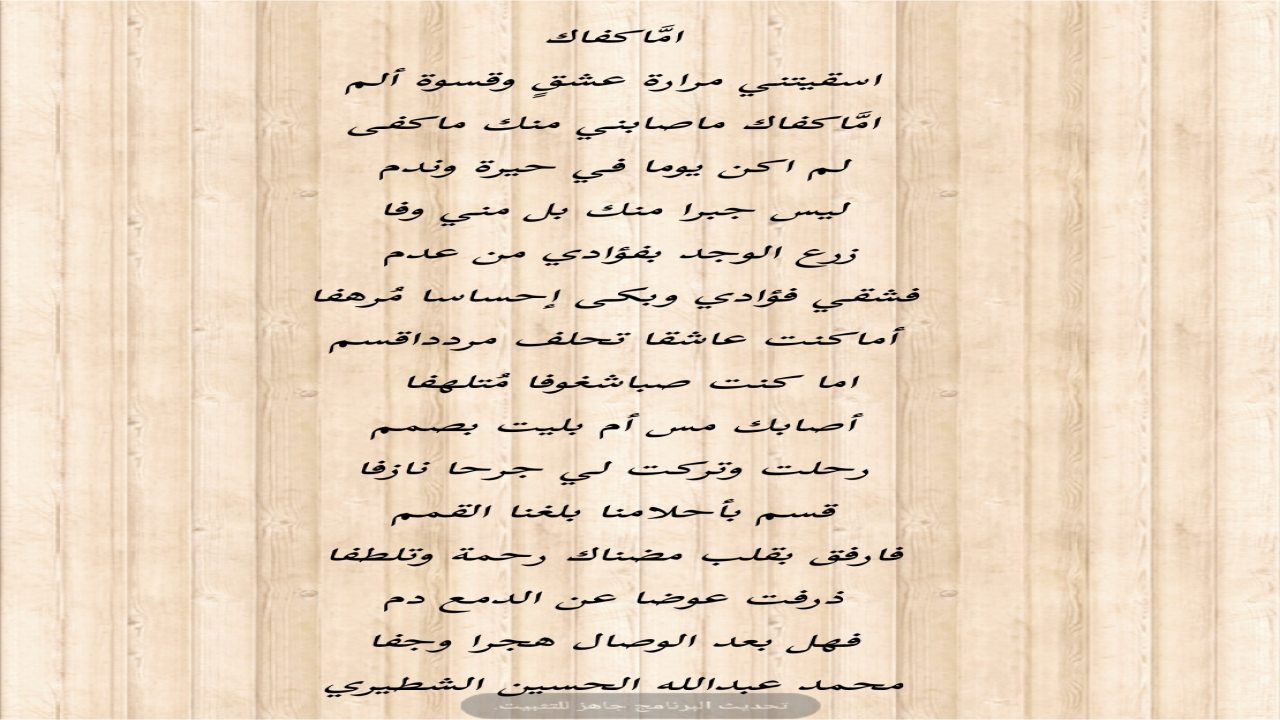 امَّاكفاك
اسقيتني مرارة عشقٍ وقسوة ألم
امَّاكفاك ماصابني منك ماكفى
لم اكن يوما في حيرة وندم
ليس جبرا منك بل مني وفا
زرع الوجد بفؤادي من عدم
فشقي فؤادي وبكى إحساسا مُرهفا
أماكنت عاشقا تحلف مردداقسم
اما كنت صباشغوفا مُتلهفا
أصابك مس أم بليت بصمم
رحلت وتركت لي جرحا نازفا
قسم بأحلامنا بلغنا القمم
فارفق بقلب مضناك رحمة وتلطفا
ذرفت عوضا عن الدمع دم
فهل بعد الوصال هجرا وجفا
محمد عبدالله الحسين الشطيري
تحديث البرنامج جاهز للتثبيت.